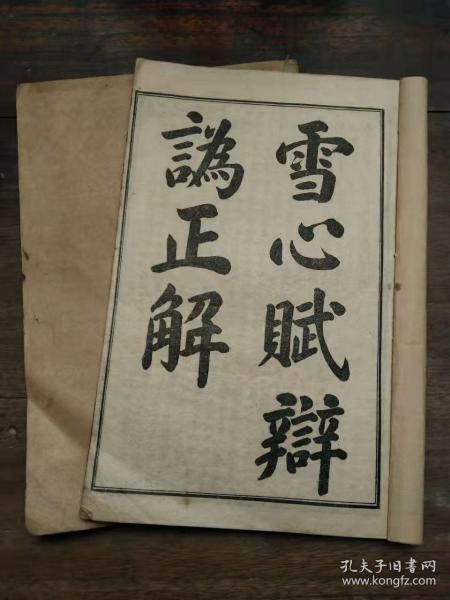 雪心賦辯
譌正解
孔夫子旧书网
www.kongfz.com